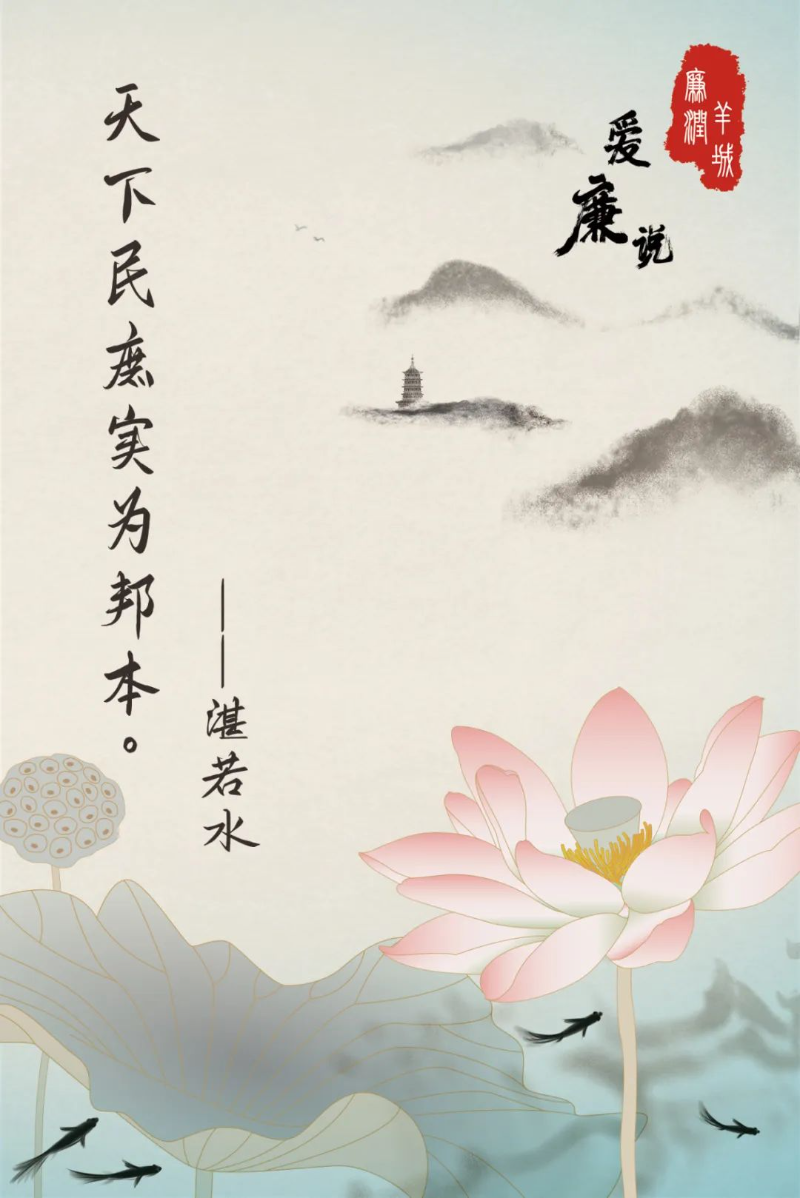 廉潤
羊城
爱廉说
天下民庶实为邦本。
——湛若水